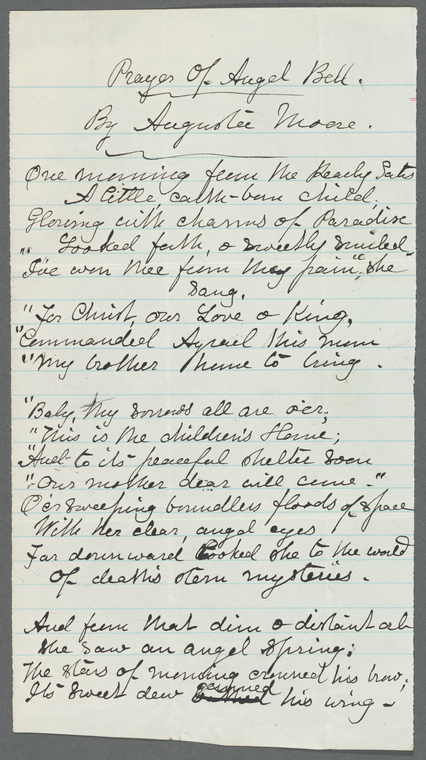 Prayer Of Angel Bell.
By Augustee Moore.
One morning from the Pearly Gates
A little, earth-born child,
Glowing with charms of Paradise
Looked forth, & sweetly smiled
"I've won thee from thy pain", she
sang,
"For Christ, our Love & King,
"Commanded Azrael this morn
"My brother home to bring.
"Baby, thy sorrows all are o'er,
"This is the children's Home;
"And to its peaceful shelter soon
"Our mother dear will come."
O'er sweeping boundless floods of space
With her clear, angel eyes
Far downward looked she to the world
Of death's stern mysteries.
And from that dim & distant orb
She saw an angel spring;
The stars of morning crowned his brow;
Its sweet dew his wing -